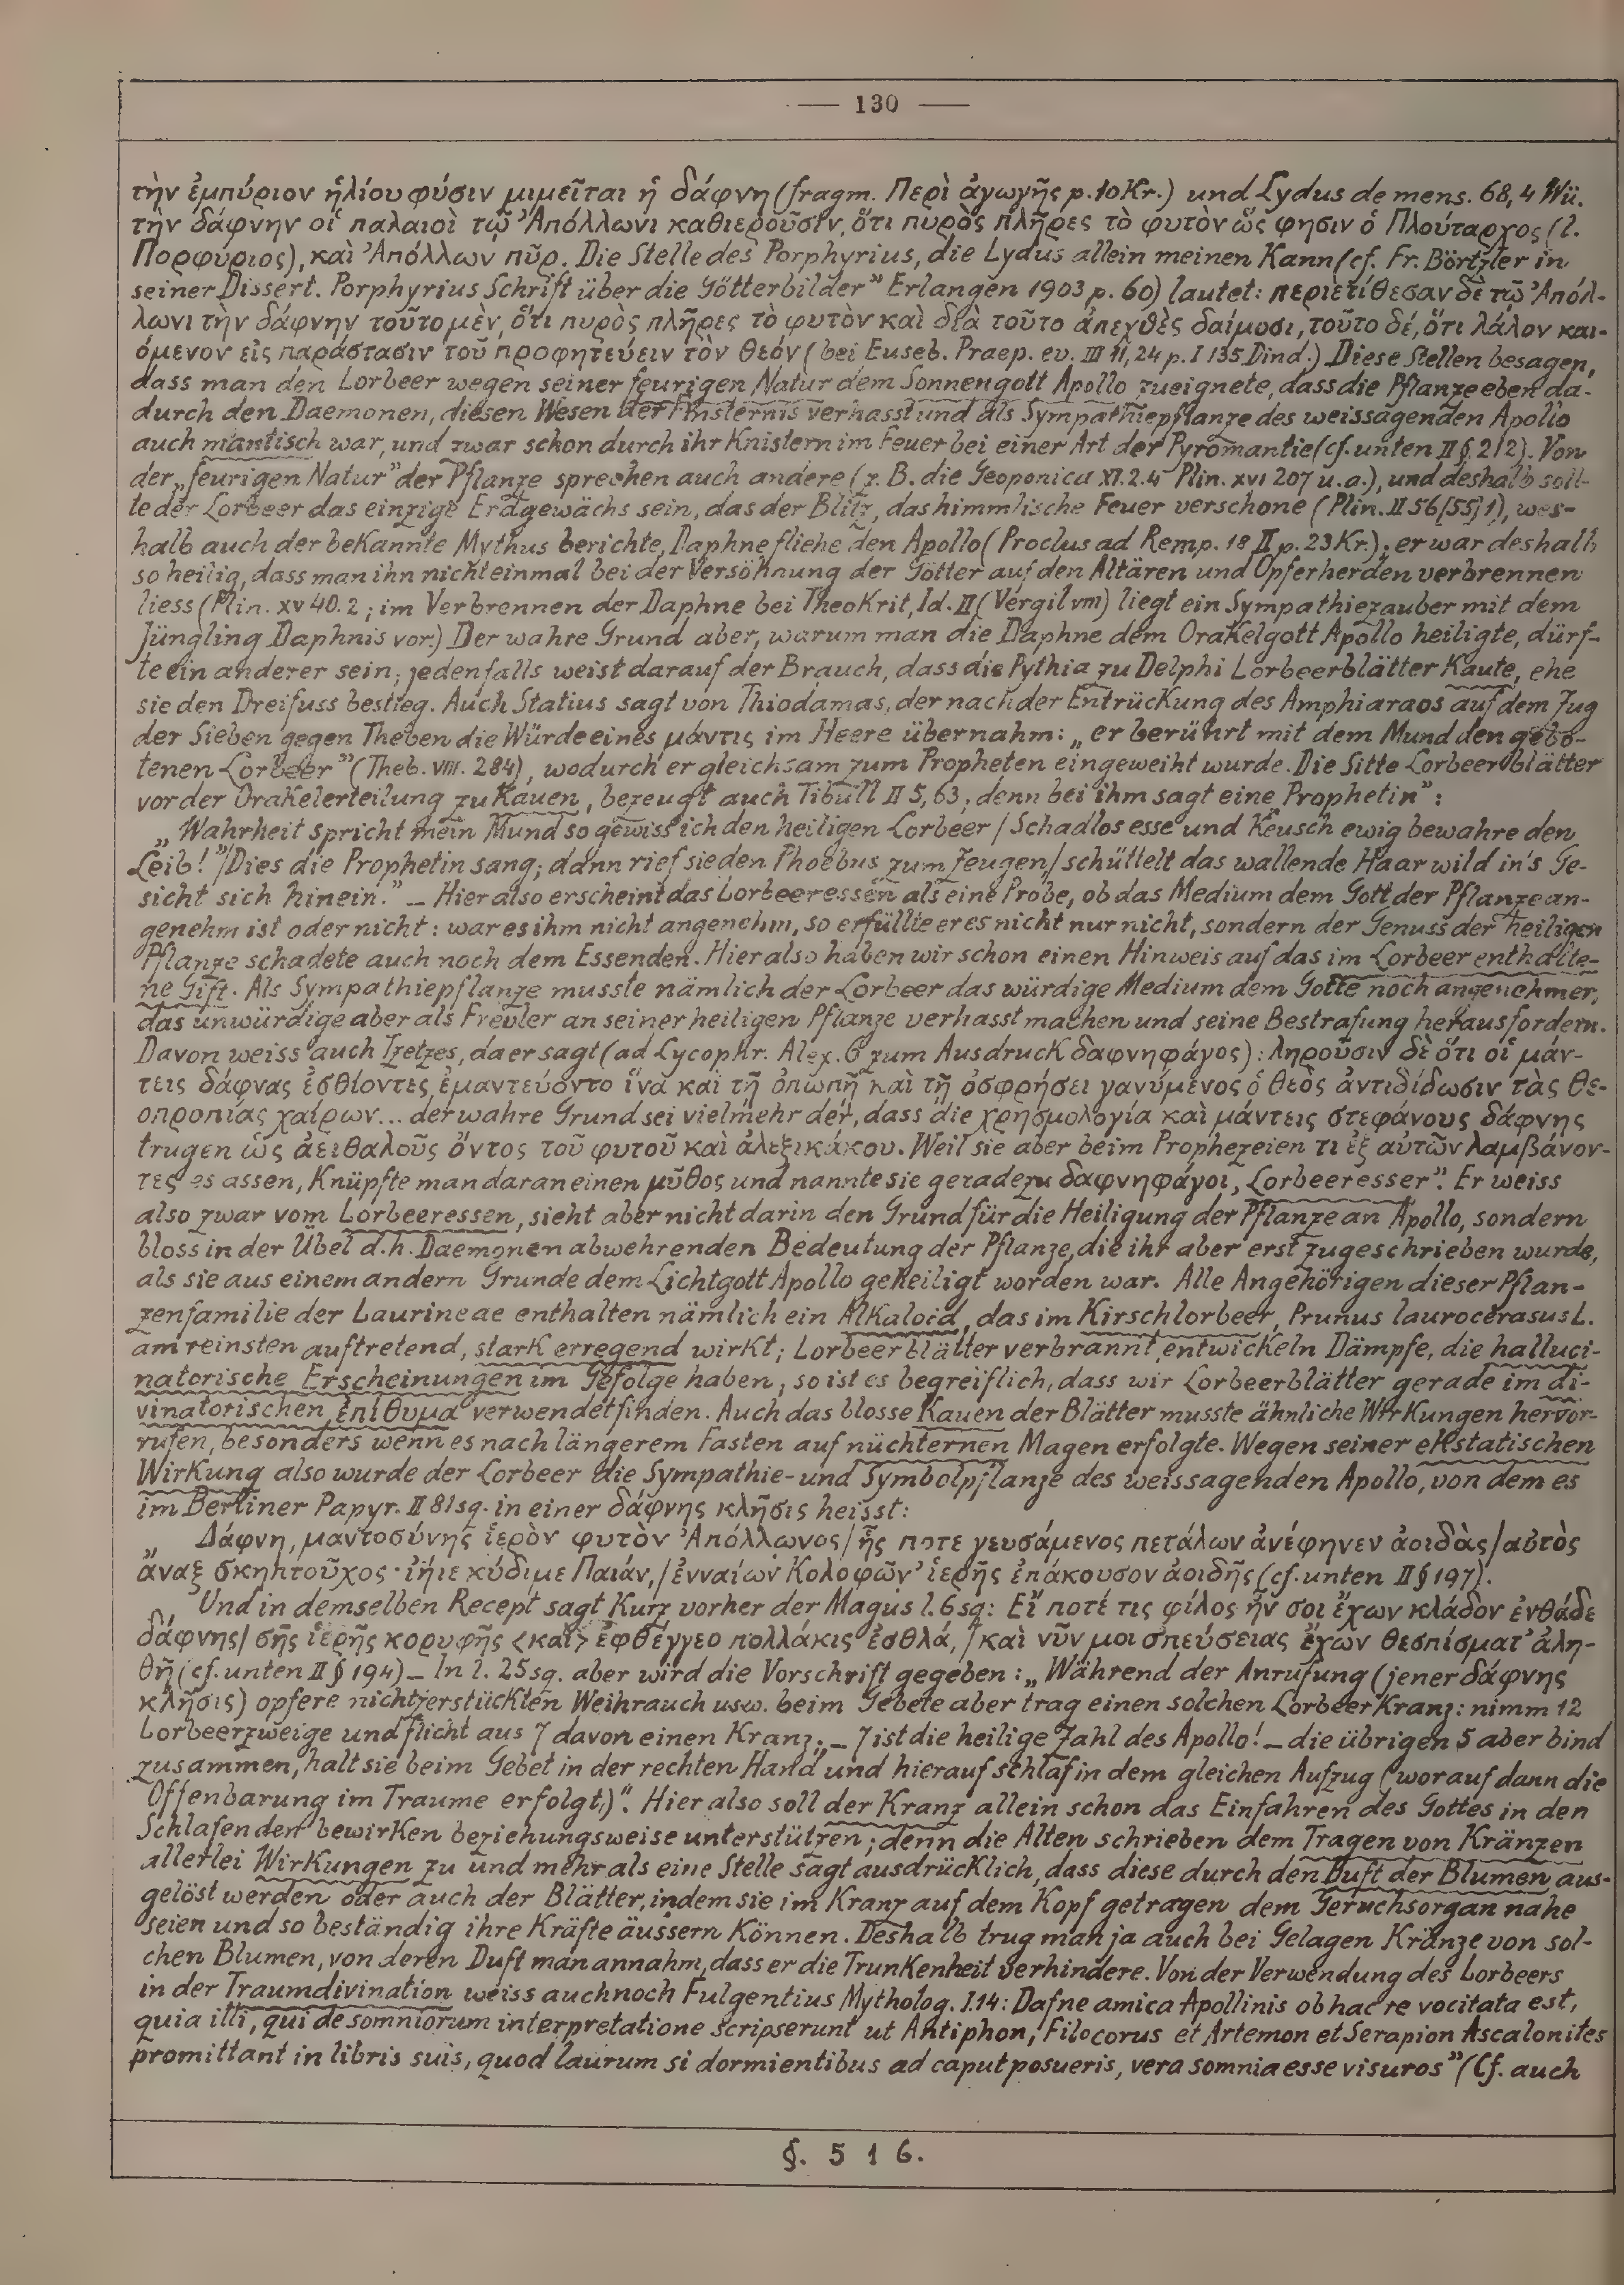 — 130 —
τὴν ἐμπύριον ἡλίου φύσιν μιμεῖται ἡ δάφνη (fragm. Περὶ ἀγωγῆς p. 10 Kr.) und Lydus de mens. 68,4 Wü.
τὴν δάφνην οἱ παλαιοὶ τῷ Ἀπόλλωνι καθιεροῦσιν, ὅτι πυρὸς πλῆρες τὸ φυτὸν ὥς φησιν ὁ Πλούταρχος (l.
Πορφύριος), καὶ Ἀπόλλων πῦρ. Die Stelle des Porphyrius, die Lydus allein meinen kann (cf. Fr. Börtzler in
seiner Dissert. Porphyrius Schrift über die Götterbilder" Erlangen 1903 p. 60) lautet: περιετίθεσαν δὲ τῷ Ἀπόλ-
λωνι τὴν δάφνην τοῦτο μὲν, ὅτι πυρὸς πλῆρες τὸ φυτὸν καὶ διὰ τοῦτο ἀπεχθὲς δαίμοσι, τοῦτο δέ, ὅτι λάλον και-
όμενον εἰς παράστασιν τοῦ προφητεύειν τὸν θεόν (bei Euseb. Praep. ev. III 11, 24 p. I 135 Dind.) Diese Stellen besagen,
dass man den Lorbeer wegen seiner feurigen Natur dem Sonnengott Apollo zueignete, dass die Pflanze eben da-
durch den Daemonen, diesen Wesen der Finsternis verhasst und als Sympathiepflanze des weissagenden Apollo
auch mantisch war, und zwar schon durch ihr Knistern im Feuer bei einer Art der Pyromantie (cf. unten II §. 212). Von
der „feurigen Natur" der Pflanze sprechen auch andere (z. B. die Geoponica XI. 2. 4 Plin. XVI 207 u. a.), und deshalb soll-
te der Lorbeer das einzige Erdgewächs sein, das der Blitz, das himmlische Feuer verschone (Plin. II 56 [55] 1), wes-
halb auch der bekannte Mythus berichte, Daphne fliehe den Apollo (Proclus ad Remp. 18 II p. 23 Kr.); er war deshalb
so heilig, dass man ihn nicht einmal bei der Versöhnung der Götter auf den Altären und Opferherden verbrennen
liess (Plin. XV 40. 2; im Verbrennen der Daphne bei Theokrit, Id. II (Vergil VIII) liegt ein Sympathiezauber mit dem
Jüngling Daphnis vor.) Der wahre Grund aber, warum man die Daphne dem Orakelgott Apollo heiligte, dürf-
te ein anderer sein; jedenfalls weist darauf der Brauch, dass die Pythia zu Delphi Lorbeerblätter kaute, ehe
sie den Dreifuss bestieg. Auch Statius sagt von Thiodamas, der nach der Entrückung des Amphiaraos auf dem Zug
der Sieben gegen Theben die Würde eines μάντις im Heere übernahm: „er berührt mit dem Mund den gebo-
tenen Lorbeer" (Theb. VIII. 284), wodurch er gleichsam zum Propheten eingeweiht wurde. Die Sitte Lorbeerblätter
vor der Orakelerteilung zu kauen, bezeugt auch Tibull II 5, 63, denn bei ihm sagt eine Prophetin":
„Wahrheit spricht mein Mund so gewiss ich den heiligen Lorbeer / Schadlos esse und keusch ewig bewahre den
Leib!"/Dies die Prophetin sang; dann rief sie den Phoebus zum Zeugen,/ schüttelt das wallende Haar wild in's Ge-
sicht sich hinein." — Hier also erscheint das Lorbeeressen als eine Probe, ob das Medium dem Gott der Pflanze an-
genehm ist oder nicht: war es ihm nicht angenehm, so erfüllte er es nicht nur nicht, sondern der Genuss der heiligen
Pflanze schadete auch noch dem Essenden. Hier also haben wir schon einen Hinweis auf das im Lorbeer enthalte-
ne Gift. Als Sympathiepflanze musste nämlich der Lorbeer das würdige Medium dem Gotte noch angenehmer,
das unwürdige aber als Frevler an seiner heiligen Pflanze verhasst machen und seine Bestrafung herausfordern.
Davon weiss auch Tzetzes, da er sagt (ad Lycophr. Alex. 6 zum Ausdruck δαφνηφάγος): ληροῦσιν δὲ ὅτι οἱ μάν-
τεις δάφνας ἐσθίοντες, ἐμαντεύοντο ἵνα καὶ τῇ ὀπωπῇ καὶ τῇ ὀσφρήσει γανύμενος ὁ θεὸς ἀντιδίδωσιν τὰς θε-
οπροπίας χαίρων... der wahre Grund sei vielmehr der, dass die χρησμολογία καὶ μάντεις στεφάνους δάφνης
trugen ὡς ἀειθαλοῦς ὄντος τοῦ φυτοῦ καὶ ἀλεξικάκου. Weil sie aber beim Prophezeien τι ἐξ αὐτῶν λαμβάνον-
τες es assen, knüpfte man daran einen μῦθος und nannte sie geradezu δαφνηφάγοι, „Lorbeeresser". Er weiss
also zwar vom Lorbeeressen, sieht aber nicht darin den Grund für die Heiligung der Pflanze an Apollo, sondern
bloss in der Übel d. h. Daemonen abwehrenden Bedeutung der Pflanze, die ihr aber erst zugeschrieben wurde,
als sie aus einem andern Grunde dem Lichtgott Apollo geheiligt worden war. Alle Angehörigen dieser Pflan-
zenfamilie der Laurineae enthalten nämlich ein Alkaloid, das im Kirschlorbeer, Prunus laurocerasus L.
am reinsten auftretend, stark erregend wirkt; Lorbeerblätter verbrannt entwickeln Dämpfe, die halluci-
natorische Erscheinungen im Gefolge haben; so ist es begreiflich, dass wir Lorbeerblätter gerade im di-
vinatorischen ἐπίθυμα verwendet finden. Auch das blosse Kauen der Blätter musste ähnliche Wirkungen hervor-
rufen, besonders wenn es nach längerem Fasten auf nüchternen Magen erfolgte. Wegen seiner ekstatischen
Wirkung also wurde der Lorbeer die Sympathie- und Symbolpflanze des weissagenden Apollo, von dem es
im Berliner Papyr. II 81 sq. in einer δάφνης κλῆσις heisst:
„Δάφνη, μαντοσύνης ἱερὸν φυτὸν Ἀπόλλωνος / ἧς ποτε γευσάμενος πετάλων ἀνέφηνεν ἀοιδὰς/αὐτὸς
ἄναξ σκηπτοῦχος· ἰήιε κύδιμε Παιάν,/ἐνναίων Κολοφῶν' ἱερῆς ἐπάκουσον ἀοιδῆς (cf. unten II § 197).
Und in demselben Recept sagt kurz vorher der Magus l. 6 sq: Εἴ ποτέ τις φίλος ἦν σοι ἔχων κλάδον ἐνθάδε
δάφνης/ σῆς ἱερῆς κορυφῆς <καὶ> ἐφθέγγεο πολλάκις ἐσθλά, /καὶ νῦν μοι σπεύσειας ἔχων θεσπίσματ' ἀλη-
θῆ (cf. unten II § 194) — In l. 25 sq. aber wird die Vorschrift gegeben: „Während der Anrufung (jener δάφνης
κλῆσις) opfere nicht zerstückten Weihrauch usw. beim Gebete aber trag einen solchen Lorbeerkranz: nimm 12
Lorbeerzweige und flicht aus 7 davon einen Kranz; — 7 ist die heilige Zahl des Apollo! — die übrigen 5 aber bind
zusammen, halt sie beim Gebet in der rechten Hand und hierauf schlaf in dem gleichen Aufzug (worauf dann die
Offenbarung im Traume erfolgt.)". Hier also soll der Kranz allein schon das Einfahren des Gottes in den
Schlafenden bewirken beziehungsweise unterstützen; denn die Alten schrieben dem Tragen von Kränzen
allerlei Wirkungen zu und mehr als eine Stelle sagt ausdrücklich, dass diese durch den Duft der Blumen aus-
gelöst werden oder auch der Blätter, indem sie im Kranz auf dem Kopf getragen dem Geruchsorgan nahe
seien und so beständig ihre Kräfte äussern können. Deshalb trug man ja auch bei Gelagen Kränze von sol-
chen Blumen, von deren Duft man annahm, dass er die Trunkenheit verhindere. Von der Verwendung des Lorbeers
in der Traumdivination weiss auch noch Fulgentius Mytholog. I. 14: Dafne amica Apollinis ob hac re vocitata est,
quia illi, qui de somniorum interpretatione scripserunt ut Antiphon, Filocorus et Artemon et Serapion Ascalonites
promittant in libris suis, quod laurum si dormientibus ad caput posueris, vera somnia esse visuros" (Cf. auch
§. 516.